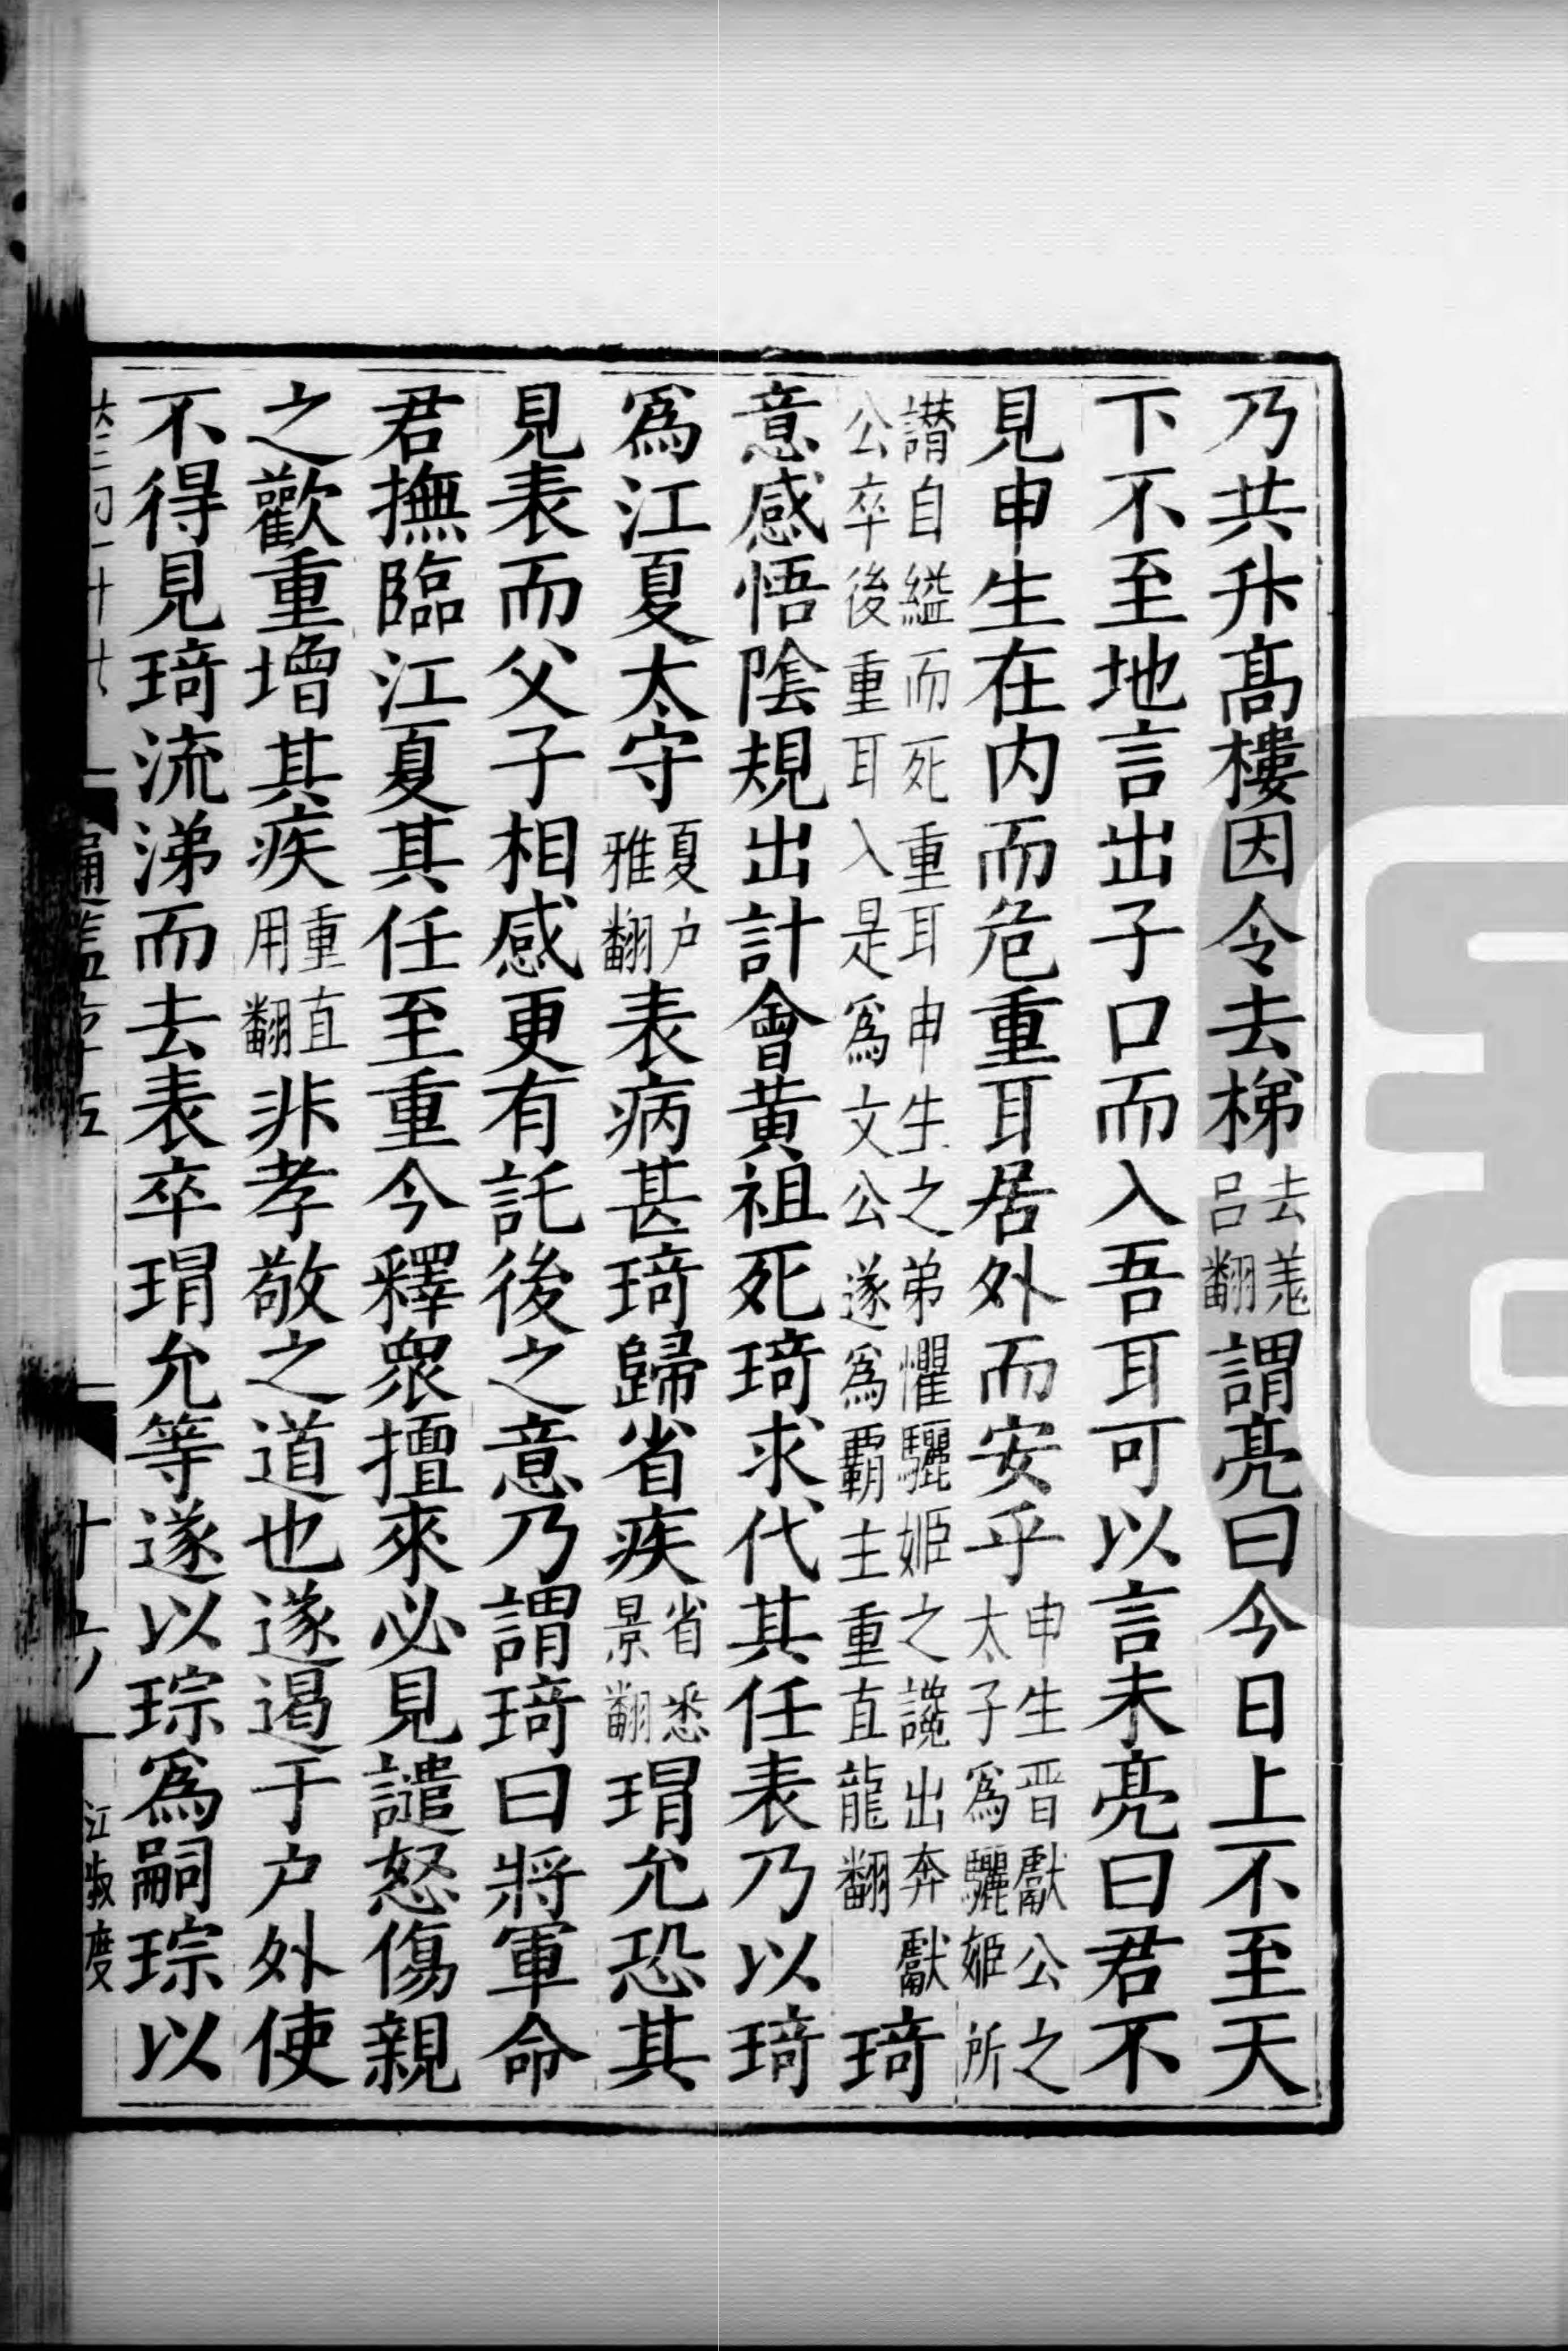 乃共升高樓因令去梯去羗吕翻謂亮曰今日上不至天
下不至地言出子口而入吾耳可以言未亮曰君不
見申生在内而危重耳居外而安乎申生晋獻公之太子為驪姬所
譖自縊而死重耳申生之弟懼驪姬之讒出奔獻公卒後重耳入是爲文公遂爲覇主重直龍翻琦
意感悟陰規出計會黄祖死琦求代其任表乃以琦
爲江夏太守夏户雅翻表病甚琦歸省疾省悉景翻瑁允恐其
見表而父子相感更有託後之意乃謂琦曰將軍命
君撫臨江夏其任至重今釋衆擅來必見譴怒傷親
之歡重增其疾重直用翻非孝敬之道也遂遏于户外使
不得見琦流涕而去表卒瑁允等遂以琮爲嗣琮以